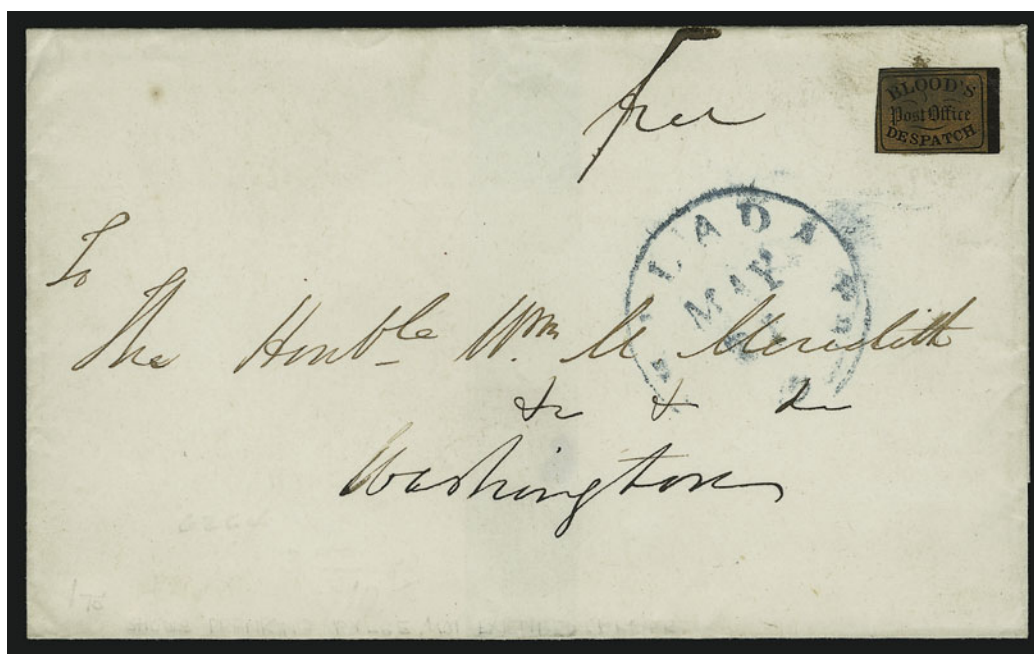 free
BLOOD'S
Post Office
DESPATCH
LADA
MAY
To
The Honble Wm. M Meredith
&c & &c
Washington